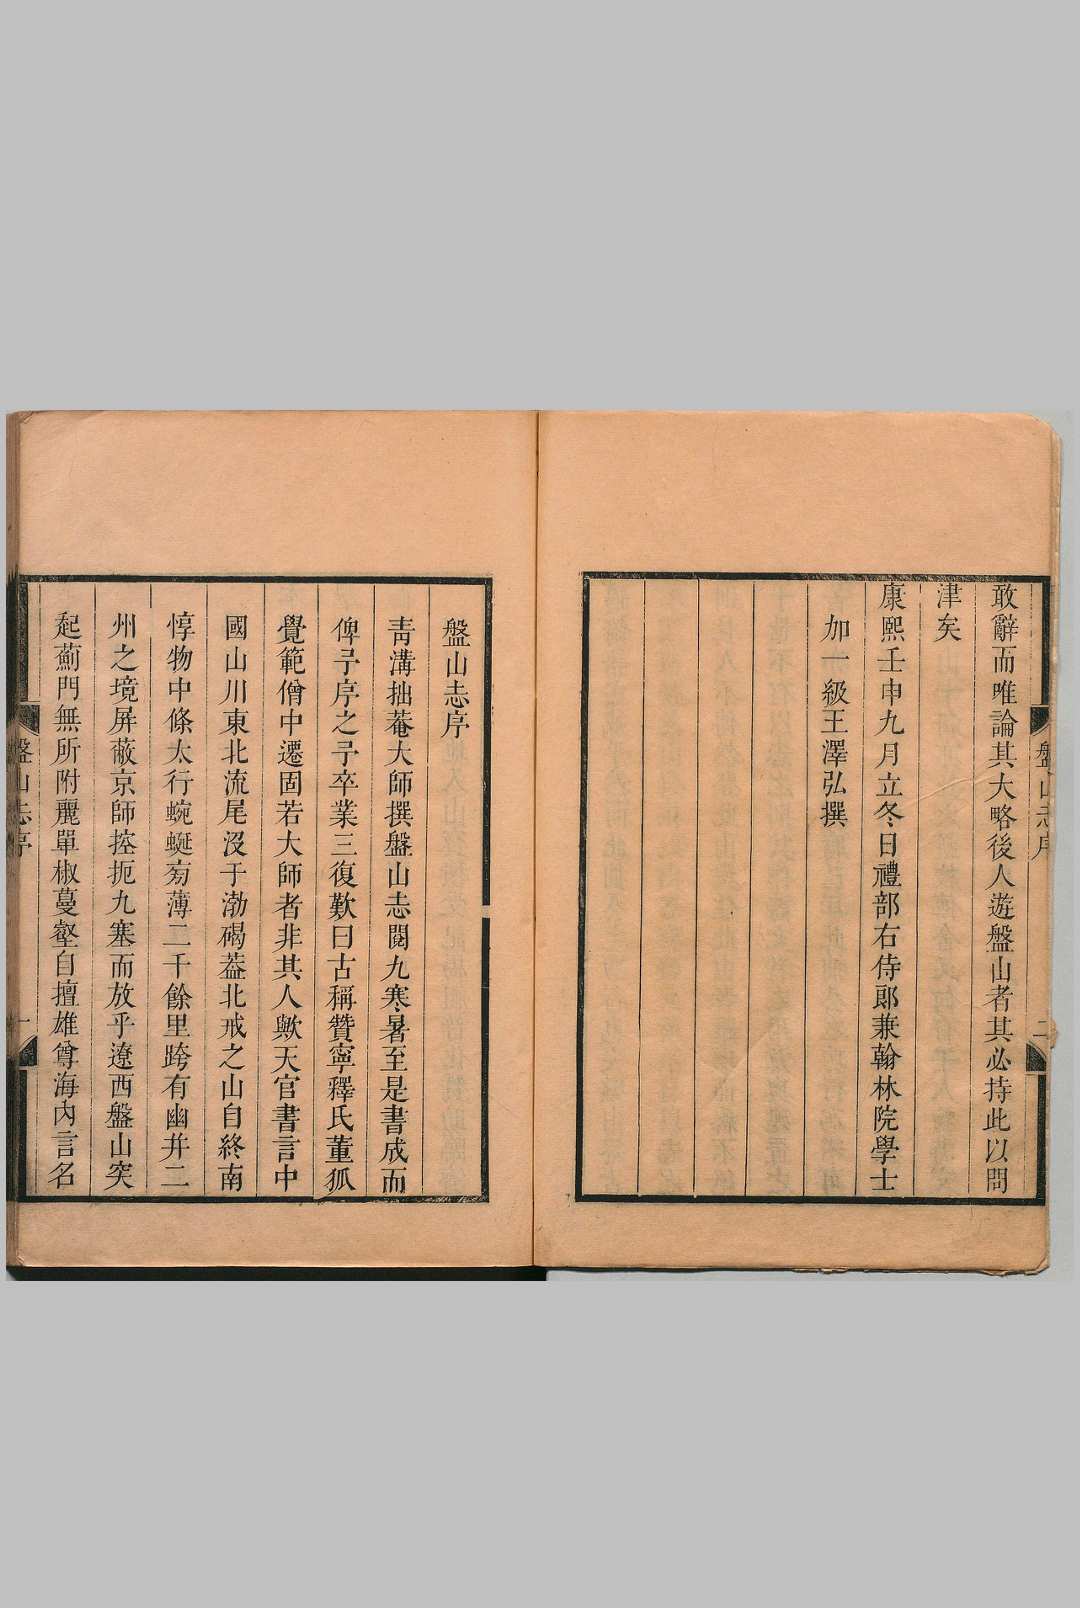 敢辭而唯論其大略後人遊盤山者其必持此以問
津矣
康熙壬申九月立冬日禮部右侍郎兼翰林院學士
加一級王澤弘撰
盤山志序
二
盤山志序
青溝拙菴大師撰盤山志閱九寒暑至是書成而
俾予序之予卒業三復歎曰古稱贊寧釋氏董狐
覺範僧中遷固若大師者非其人歟天官書言中
國山川東北流尾沒于渤碣葢北戒之山自終南
惇物中條太行蜿蜒旁薄二千餘里跨有幽幷二
州之境屏蔽京師控扼九塞而放乎遼西盤山突
起薊門無所附麗單椒蔓壑自擅雄尊海內言名
盤山志序
一